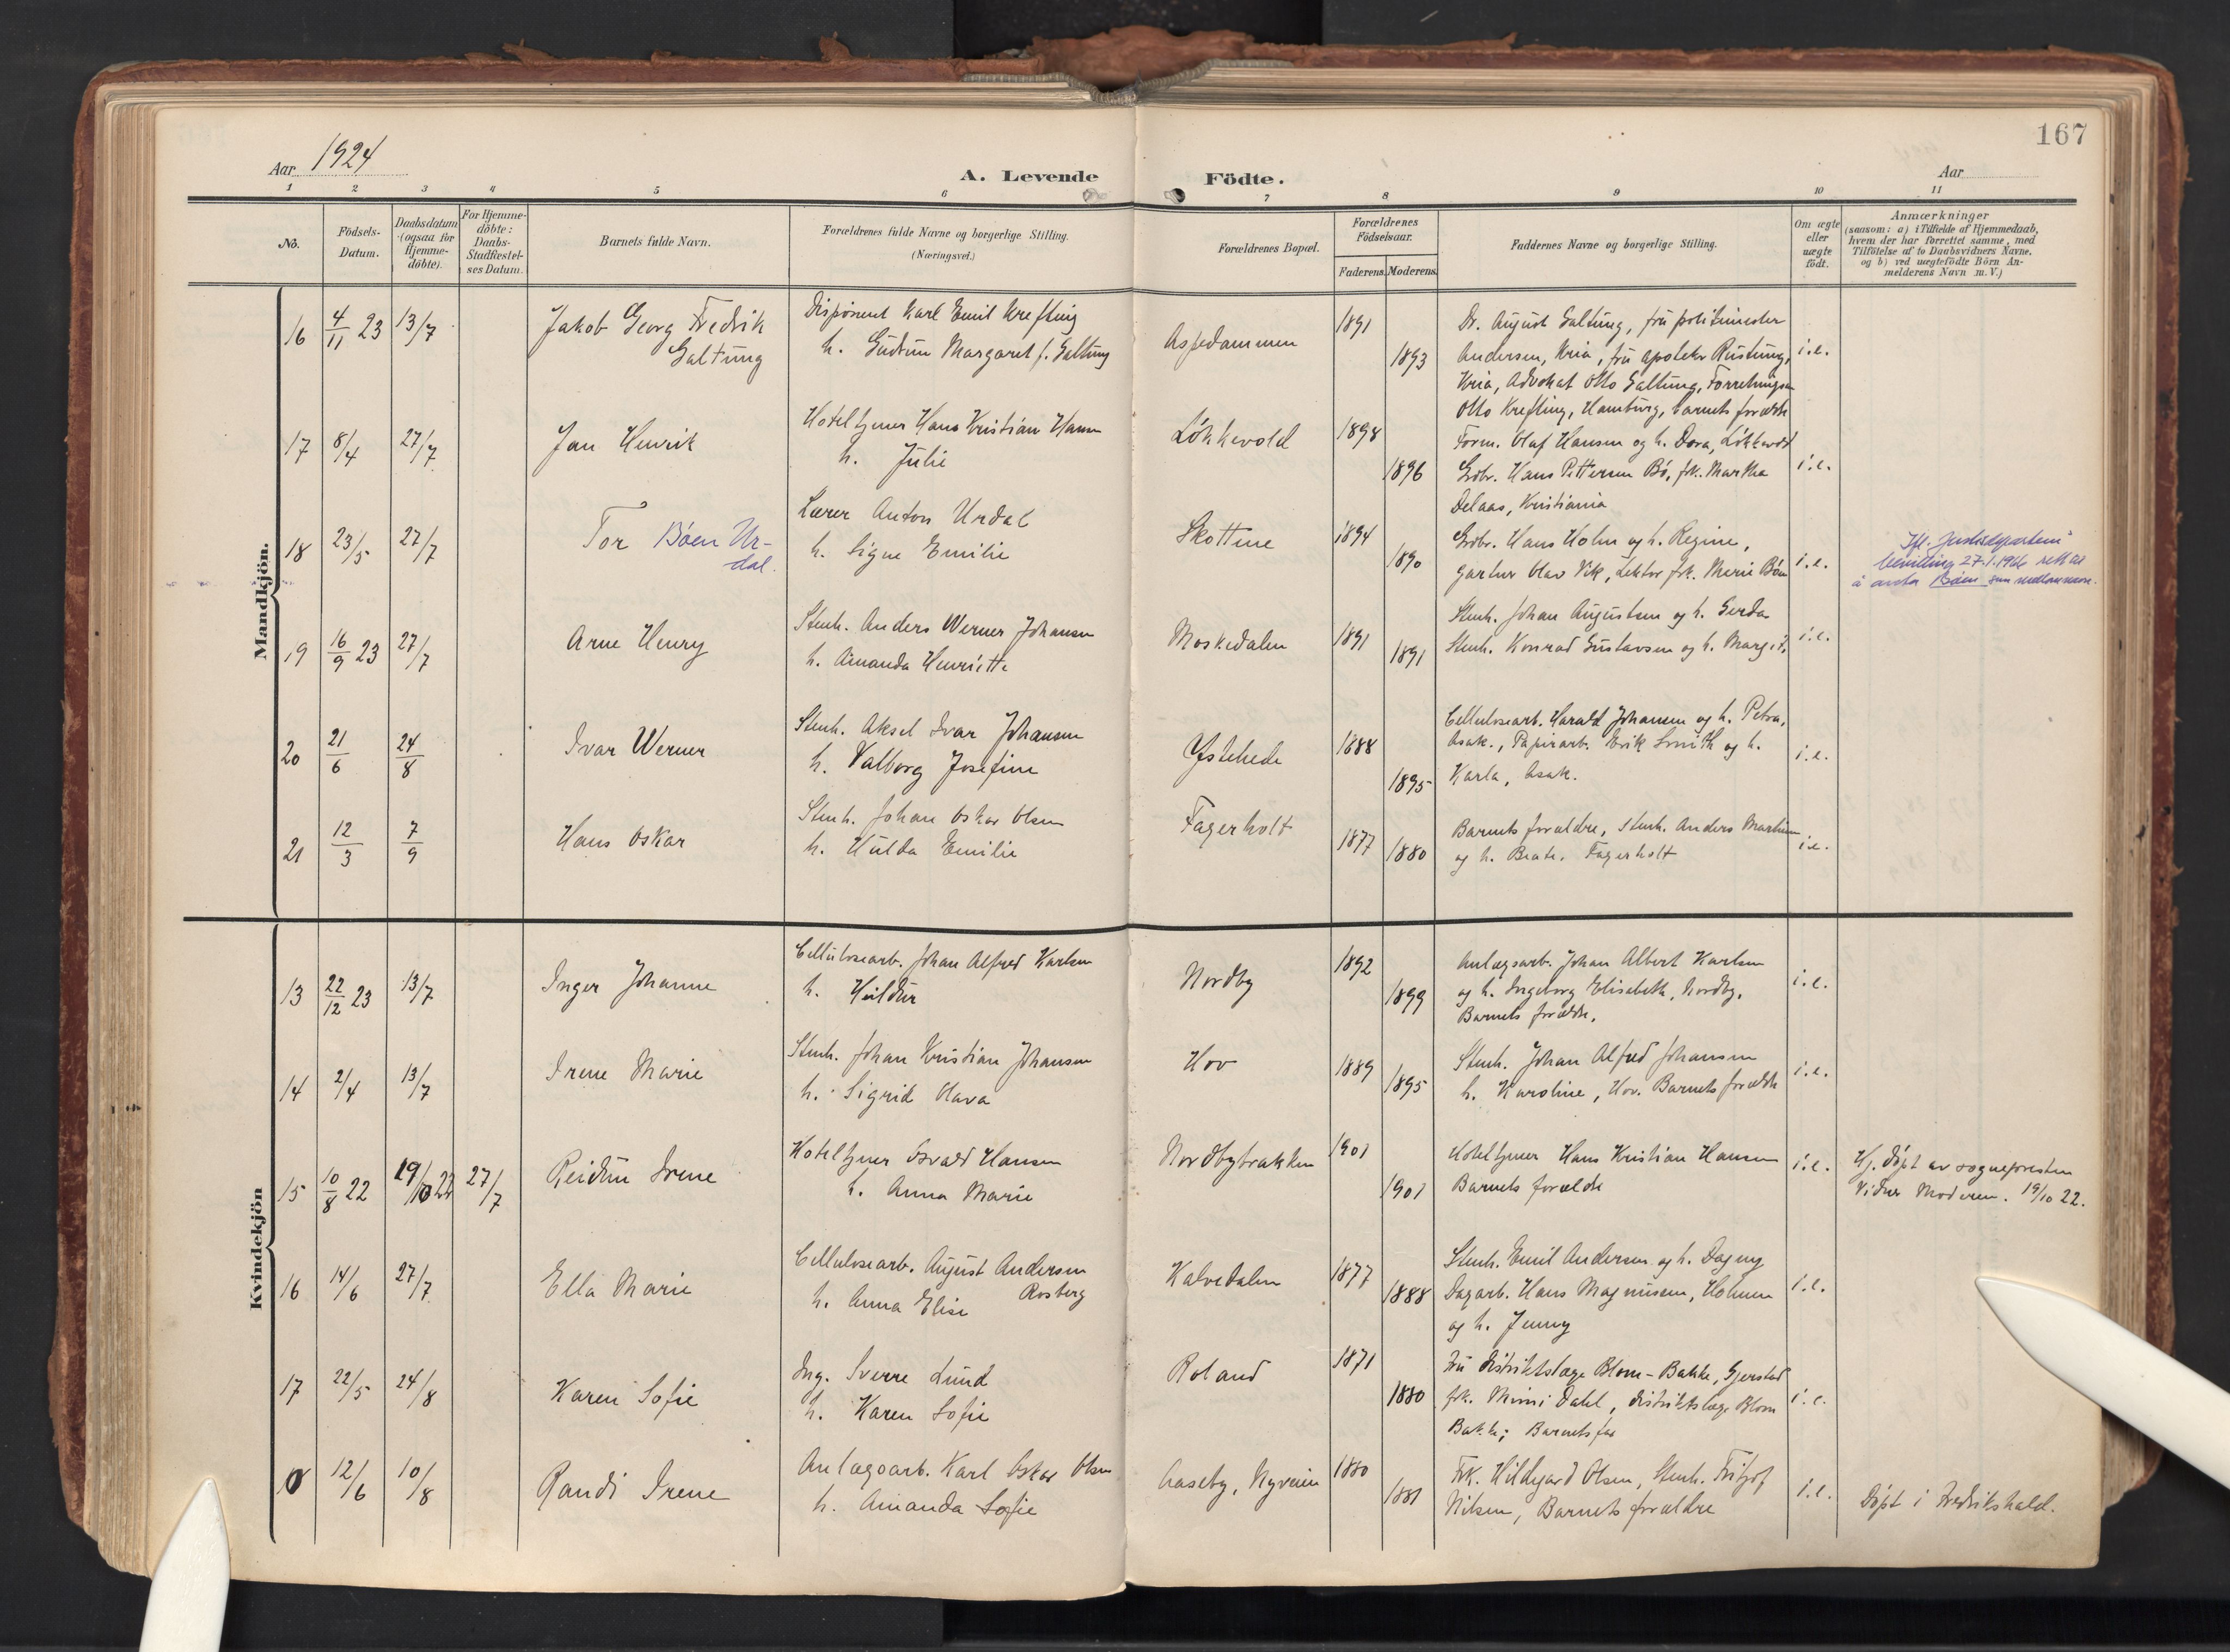 167
Aar 1924
A. Levende Födte.
Aar
1 2 3 4 5 6 7 8 9 10 11
No.
Födsels-
Datum.
Daabsdatum
(ogsaa for
Hjemme-
döbte).
For Hjemme-
döbte:
Daabs-
Stadfæstel-
ses Datum.
Barnets fulde Navn.
Forældrenes fulde Navne og borgerlige Stilling.
(Næringsvei.)
Forældrenes Bopæl.
Forældrenes
Födselsaar.
Faderens. Moderens.
Faddernes Navne og borgerlige Stilling.
Om ægte
eller
uægte
födt.
Anmærkninger
(saasom: a) i Tilfælde af Hjemmedaab,
hvem der har forrettet samme, med
Tilföielse af to Daabsvidners Navne,
og b) ved uægtefödte Börn An-
melderens Navn m. V.)
Mandkjön.
16 4/11 23 13/7 Jakob Georg Fredrik
Galtung
Disponent Karl Emil Krefting
h. Gudrun Margaret f. Galtung
Aspedammen 1891
1893
Dr. August Galtung, fru politimester
Andersen, Kria, fru apoteker Rustung,
Kria, Advokat Otto Galtung, Forretningsm
Otto Krefting, Hamburg, barnets forældre
i.e.
17 8/4 27/7 Jan Henrik
Hoteltjener Hans Kristian Hansen
h. Julie
Løkkevold 1898
1896
Form. Olaf Hansen og h. Dora, Løkkevold
Grdbr. Hans Pettersen Bø, frk. Martha
Delaas, Kristiania
i.e.
18 23/5 27/7 Tor Bøen Ur-
dal.
Lærer Anton Urdal
h. Signe Emilie
Skottene 1894
1890
Grdbr. Hans Holm og h. Regine,
gartner Olav Vik, Lektor frk. Marie Bøen
i.e.
Ifl. Justisdepartem.
bevilling 27.1.1946 rett til
å anta Bøen som mellomnavn.
19 16/9 23 27/7 Arne Henry
Stenh. Anders Werner Johansen
h. Amanda Henriette
Moskedalen 1891
1891
Stenh. Johan Augustsen og h. Gerda
Stenh. Konrad Gustavsen og h. Margit.
i.e.
20 21/6 24/8 Ivar Werner
Stenh. Aksel Ivar Johansen
h. Valborg Josefine
Ystehede 1888
1895
Cellulosearb. Harald Johansen og h. Petra,
Asak., Papirarb. Erik Smith og h.
Karla, Asak.
i.e.
21 12/3 7/9 Hans Oskar
Stenh. Johan Oskar Olsen
h. Hulda Emilie
Fagerholt
1877 1880
Barnets forældre, Stenh. Anders Martinsen
og h. Beate. Fagerholt
i.e.
Kvindekjön
13 22/12 23 13/7 Inger Johanne
Cellulosearb. Johan Alfred Karlsen
h. Huldur
Nordby 1892
1899
Anlægsarb. Johan Albert Karlsen
og h. Ingeborg Elisabeth, Nordby.
Barnets forældre.
i.e.
14 2/4 13/7 Irene Marie
Stenh. Johan Kristian Johansen
h. Sigrid Olava
Hov 1889
1895
Stenh. Johan Alfred Johansen
h. Karoline, Hov. Barnets forældre
i.e.
15 10/8 22 19/10 22 27/7 Reidun Irene
Hoteltjener Osvald Hansen
h. Anna Marie
Nordbybrakken 1901
1901
Hoteltjener Hans Kristian Hansen
Barnets forældre
i.e.
Hj. døpt av sognepresten
Vidner Moderen. 19/10 22.
16 14/6 27/7 Ella Marie
Cellulosearb. August Andersen
Rosberg
h. Anna Elise
Kalvedalen 1877
1888
Stenh. Emil Andersen og h. Dagny
Dagarb. Hans Magnussen, Holmen
og h. Jenny
i.e.
17 22/5 24/8 Karen Sofie
Ing. Sverre Lund
h. Karen Sofie
Roland 1871
1880
Fru distriktslæge Blom-Bakke, Gjerstad
frk. Mimi Dahl, distriktslæge Blom
Bakke; Barnets far
i.e.
0 12/6 10/8 Randi Irene
Anlægsarb. Karl Oskar Olsen
h. Amanda Sofie
Aaseby, Nyveien 1880
1881
Frk. Hildegard Olsen, Stenh. Fritjof
Nilsen, Barnets forældre
i.e.
Døpt i Fredrikshald.